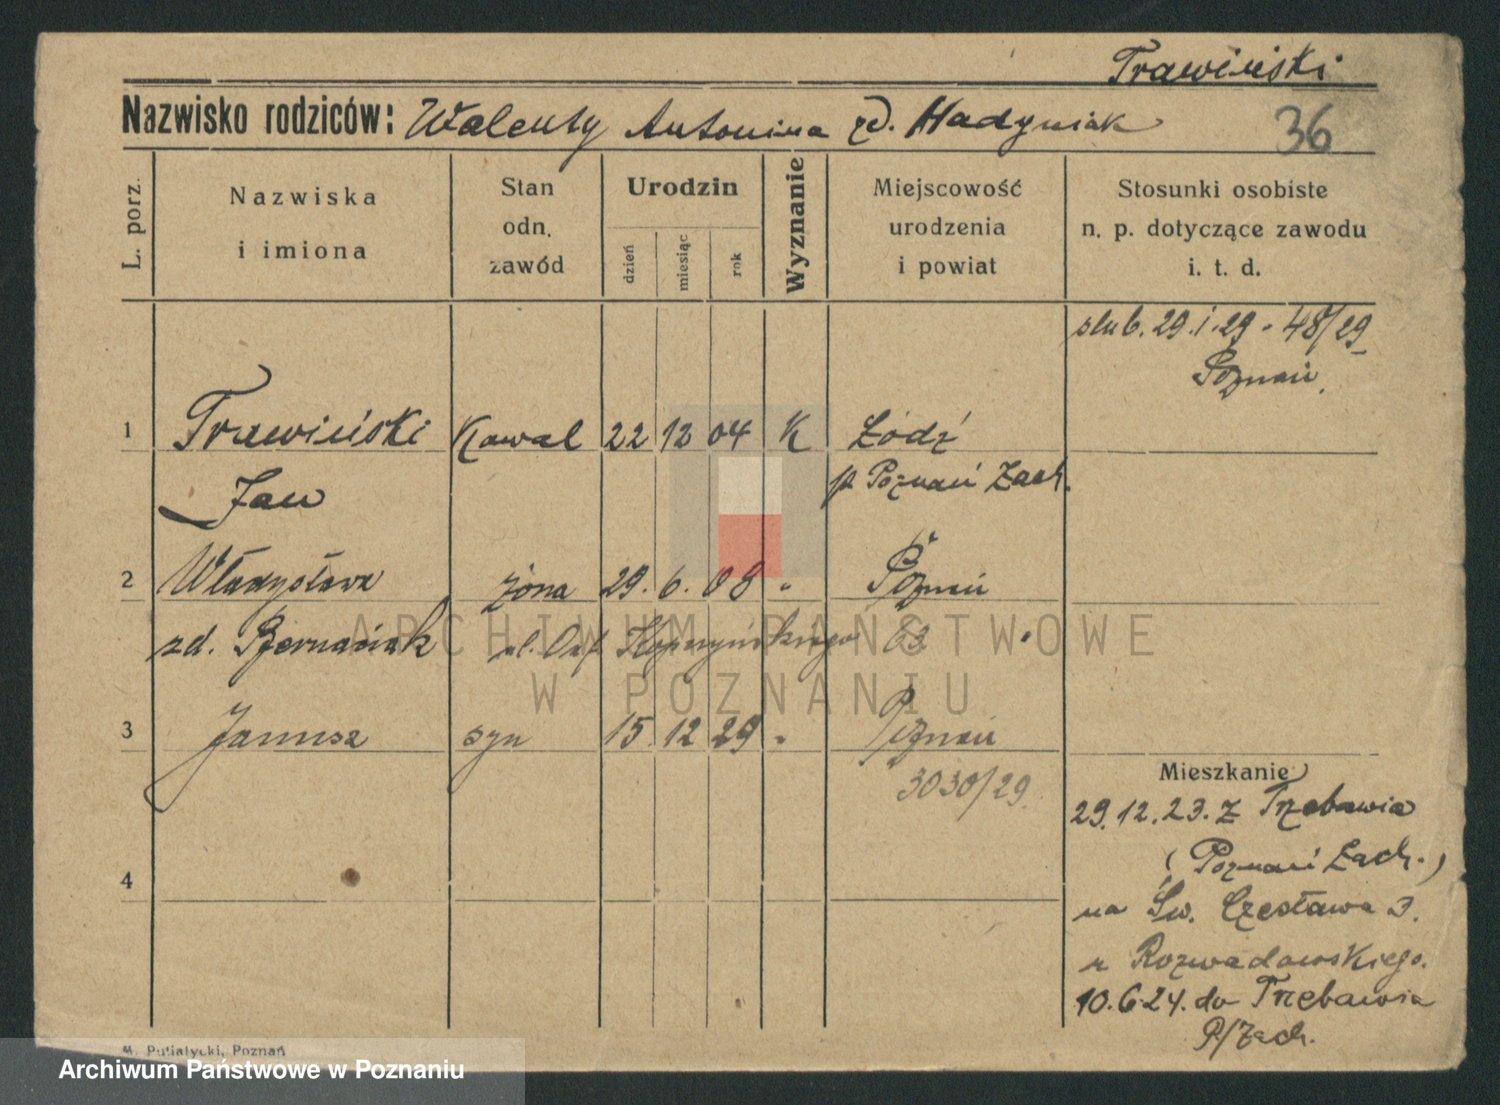 Trawiński
Nazwisko rodziców: Walenty Antonina zd. Hadyniak 36
L. porz.
Nazwiska
i imiona
Stan
odn.
zawód
Urodzin
dzień
miesiąc
rok
Wyznanie
Miejscowość
urodzenia
i powiat
Stosunki osobiste
n. p. dotyczące zawodu
i. t. d.
slub. 29.1.29 - 48/29
Poznań.
1 Trawiński Kowal 22 12 04 K Łódź
Jan p. Poznań Zach.
2 Władysława żona 29. 6. 08 " Poznań
zd. Biernaciak ul.
3 Janusz syn 15. 12 29 " Poznań
3030/29.
Mieszkanie
29.12.23. z Trzebawia
(Poznań Zach.)
na Św. Czesława 3.
u Rozwadowskiego.
10.6.24. do Trzebawia
P/Zach.
4
M. Putiatycki, Poznań
ARCHIWUM PAŃSTWOWE
W POZNANIU
Archiwum Państwowe w Poznaniu